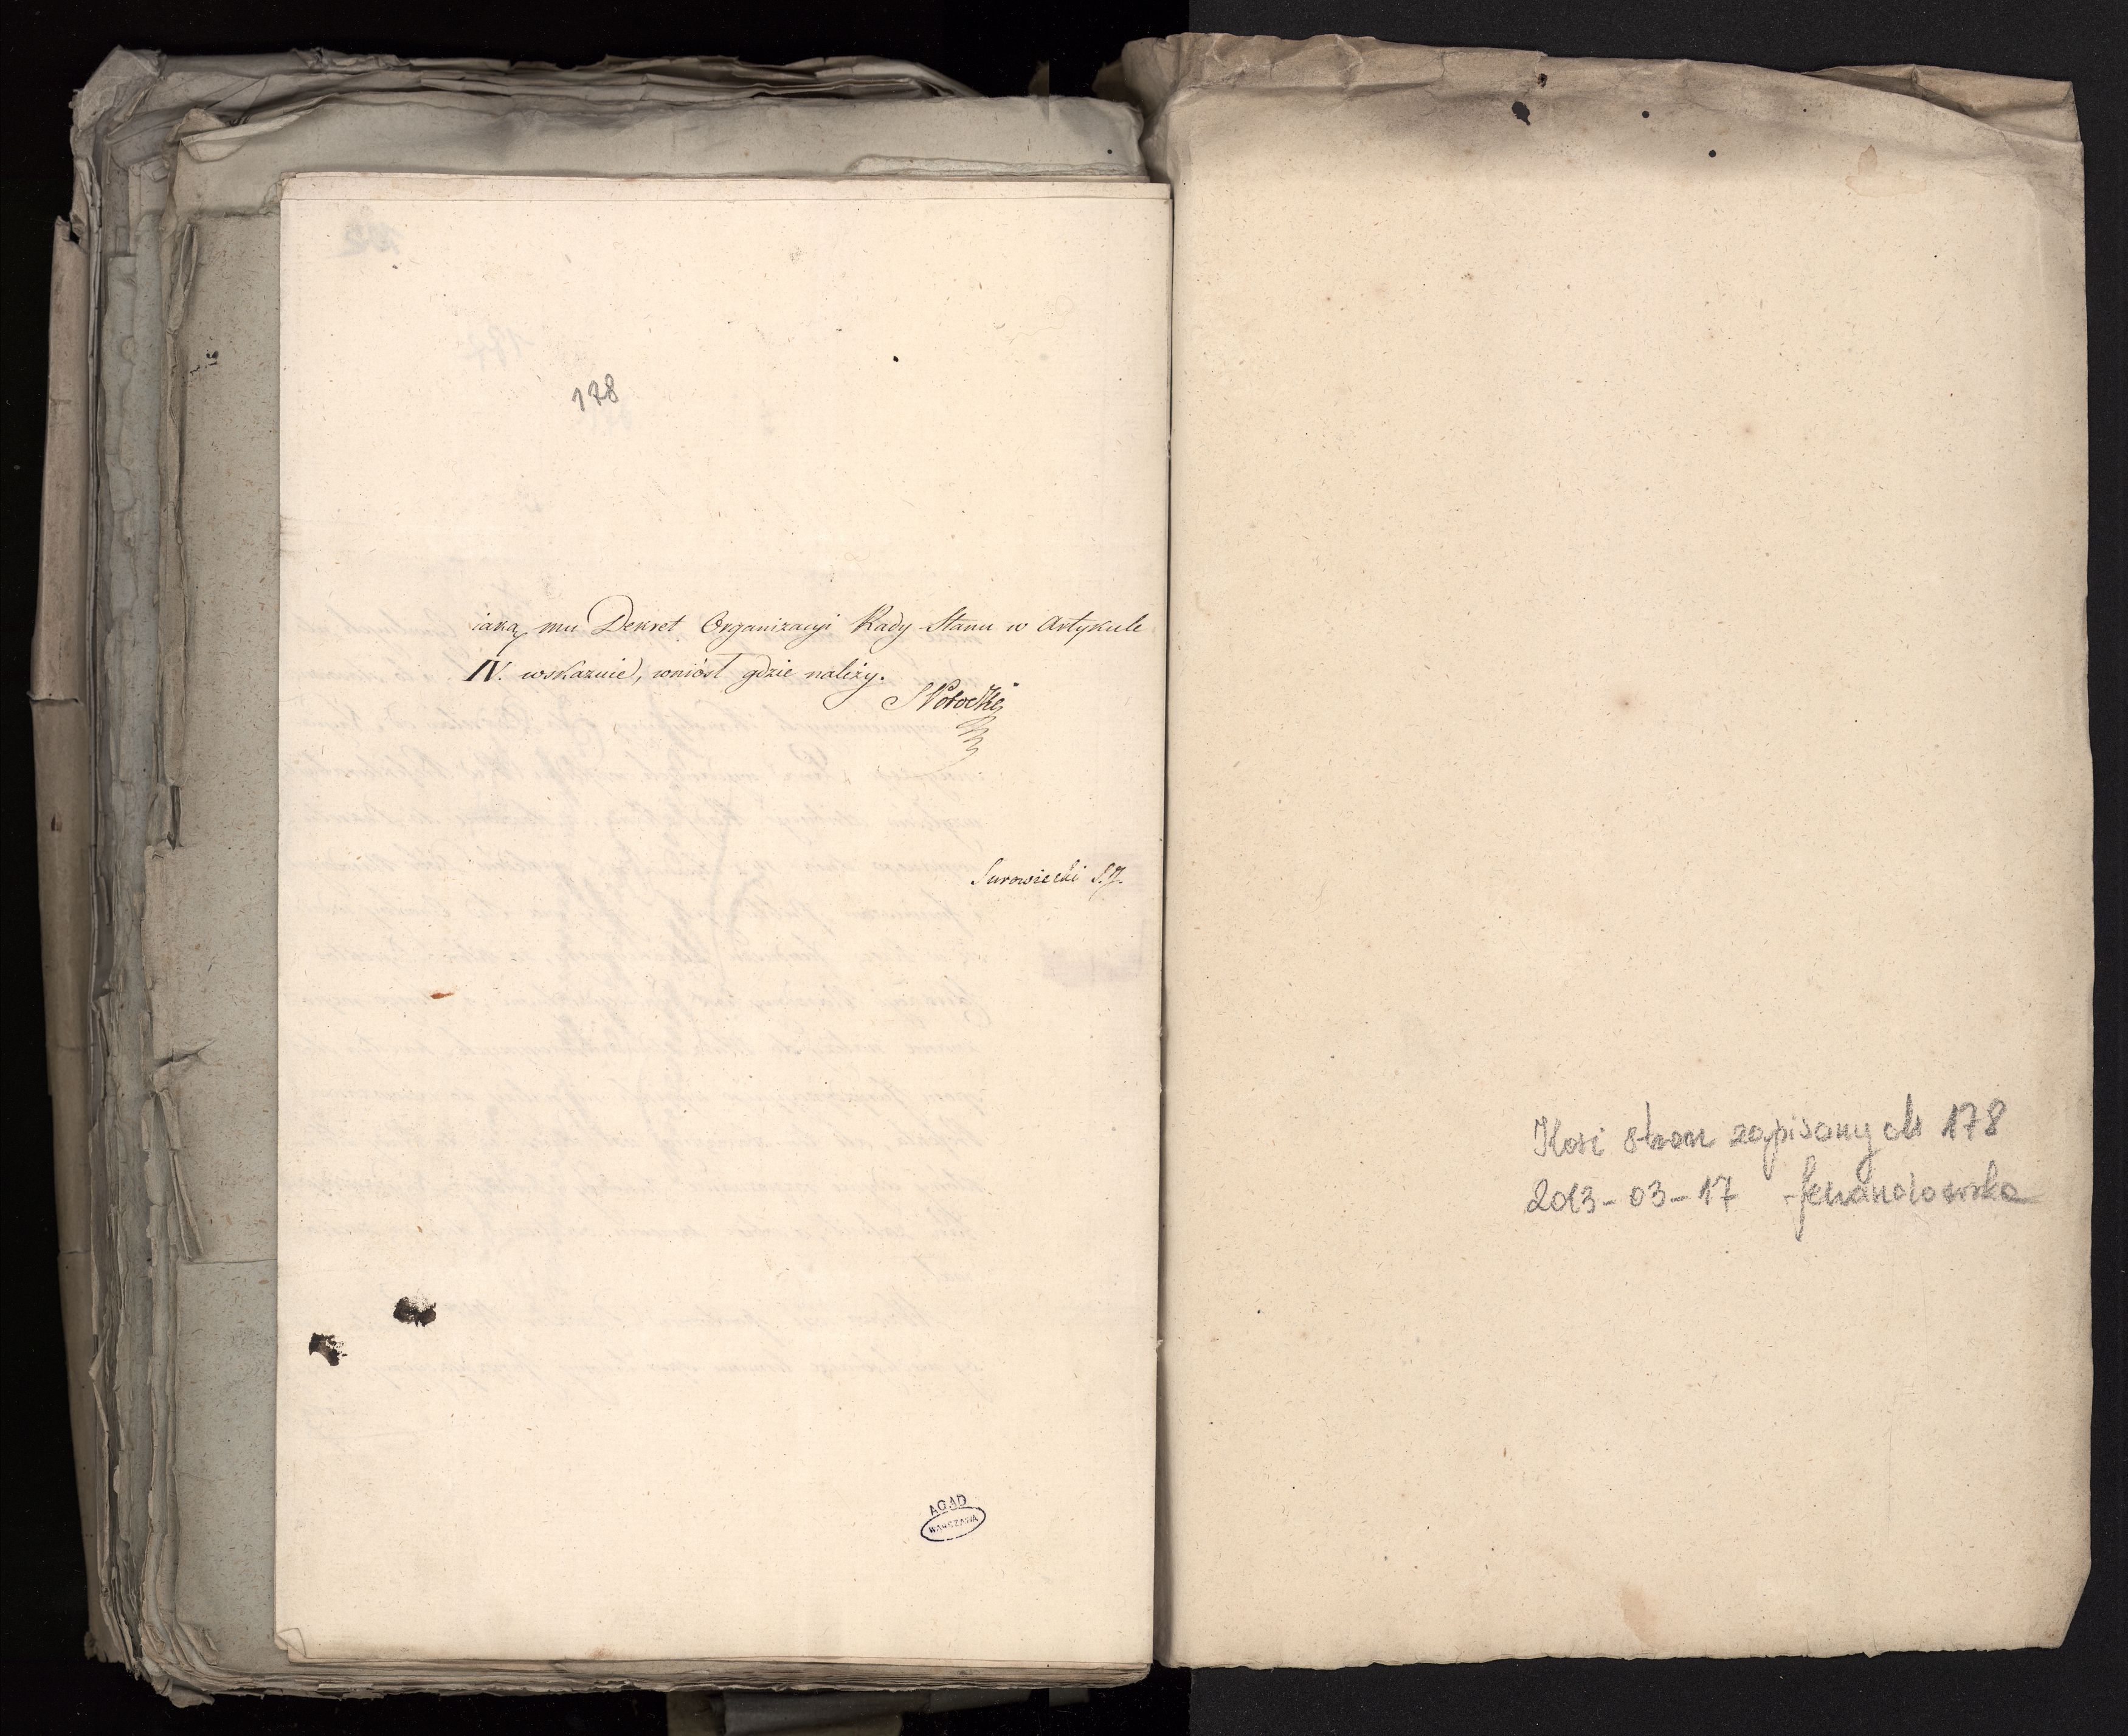 178
iaką mu Dekret Organizacyi Rady Stanu w Artykule
IV. wskazuie, wniósł gdzie należy.
S Potocki
Surowiecki S.J.
AGAD
WARSZAWA
Ilość stron zapisanych 178
2013-03-17